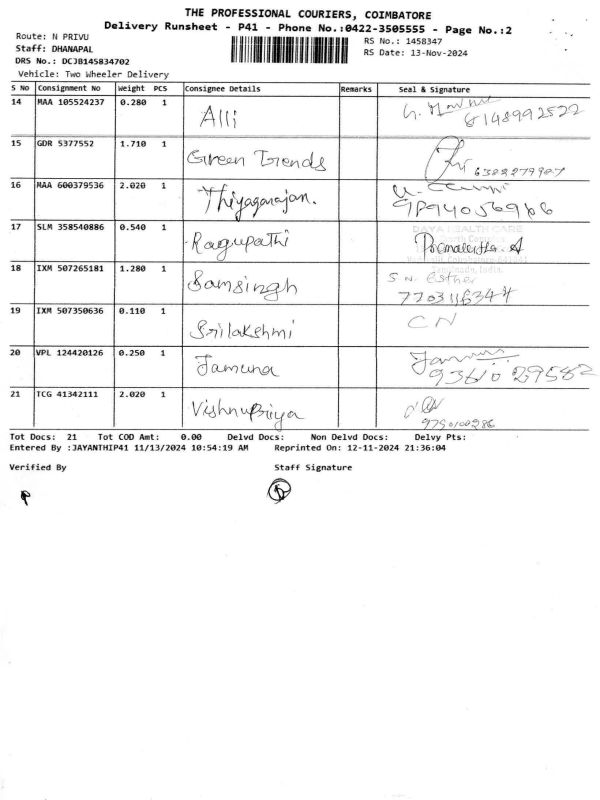 THE PROFESSIONAL COURIERS, COIMBATORE
Delivery Runsheet - P41 - Phone No.:0422-3505555 - Page No.:2
Route: N PRIVU
RS No.: 1458347
Staff: DHANAPAL
RS Date: 13-Nov-2024
DRS No.: DCJB145834702
Vehicle: Two Wheeler Delivery
S No Consignment No Weight PCS Consignee Details Remarks Seal & Signature
14 MAA 105524237 0.280 1 Alli 8148992522
15 GDR 5377552 1.710 1 Green Trends 6382279987
16 MAA 600379536 2.020 1 Thiyagarajan. 9894056966
17 SLM 358540886 0.540 1 Ragupathi DAYA HEALTH CARE
Tamilnadu, India.
18 IXM 507265181 1.280 1 Samsingh S.N. Esther
7703116344
19 IXM 507350636 0.110 1 Srilakshmi CN
20 VPL 124420126 0.250 1 Jamuna
9361029582
21 TCG 41342111 2.020 1 VishnuPriya
9790100286
Tot Docs: 21 Tot COD Amt: 0.00 Delvd Docs: Non Delvd Docs: Delvy Pts:
Entered By :JAYANTHIP41 11/13/2024 10:54:19 AM Reprinted On: 12-11-2024 21:36:04
Verified By Staff Signature